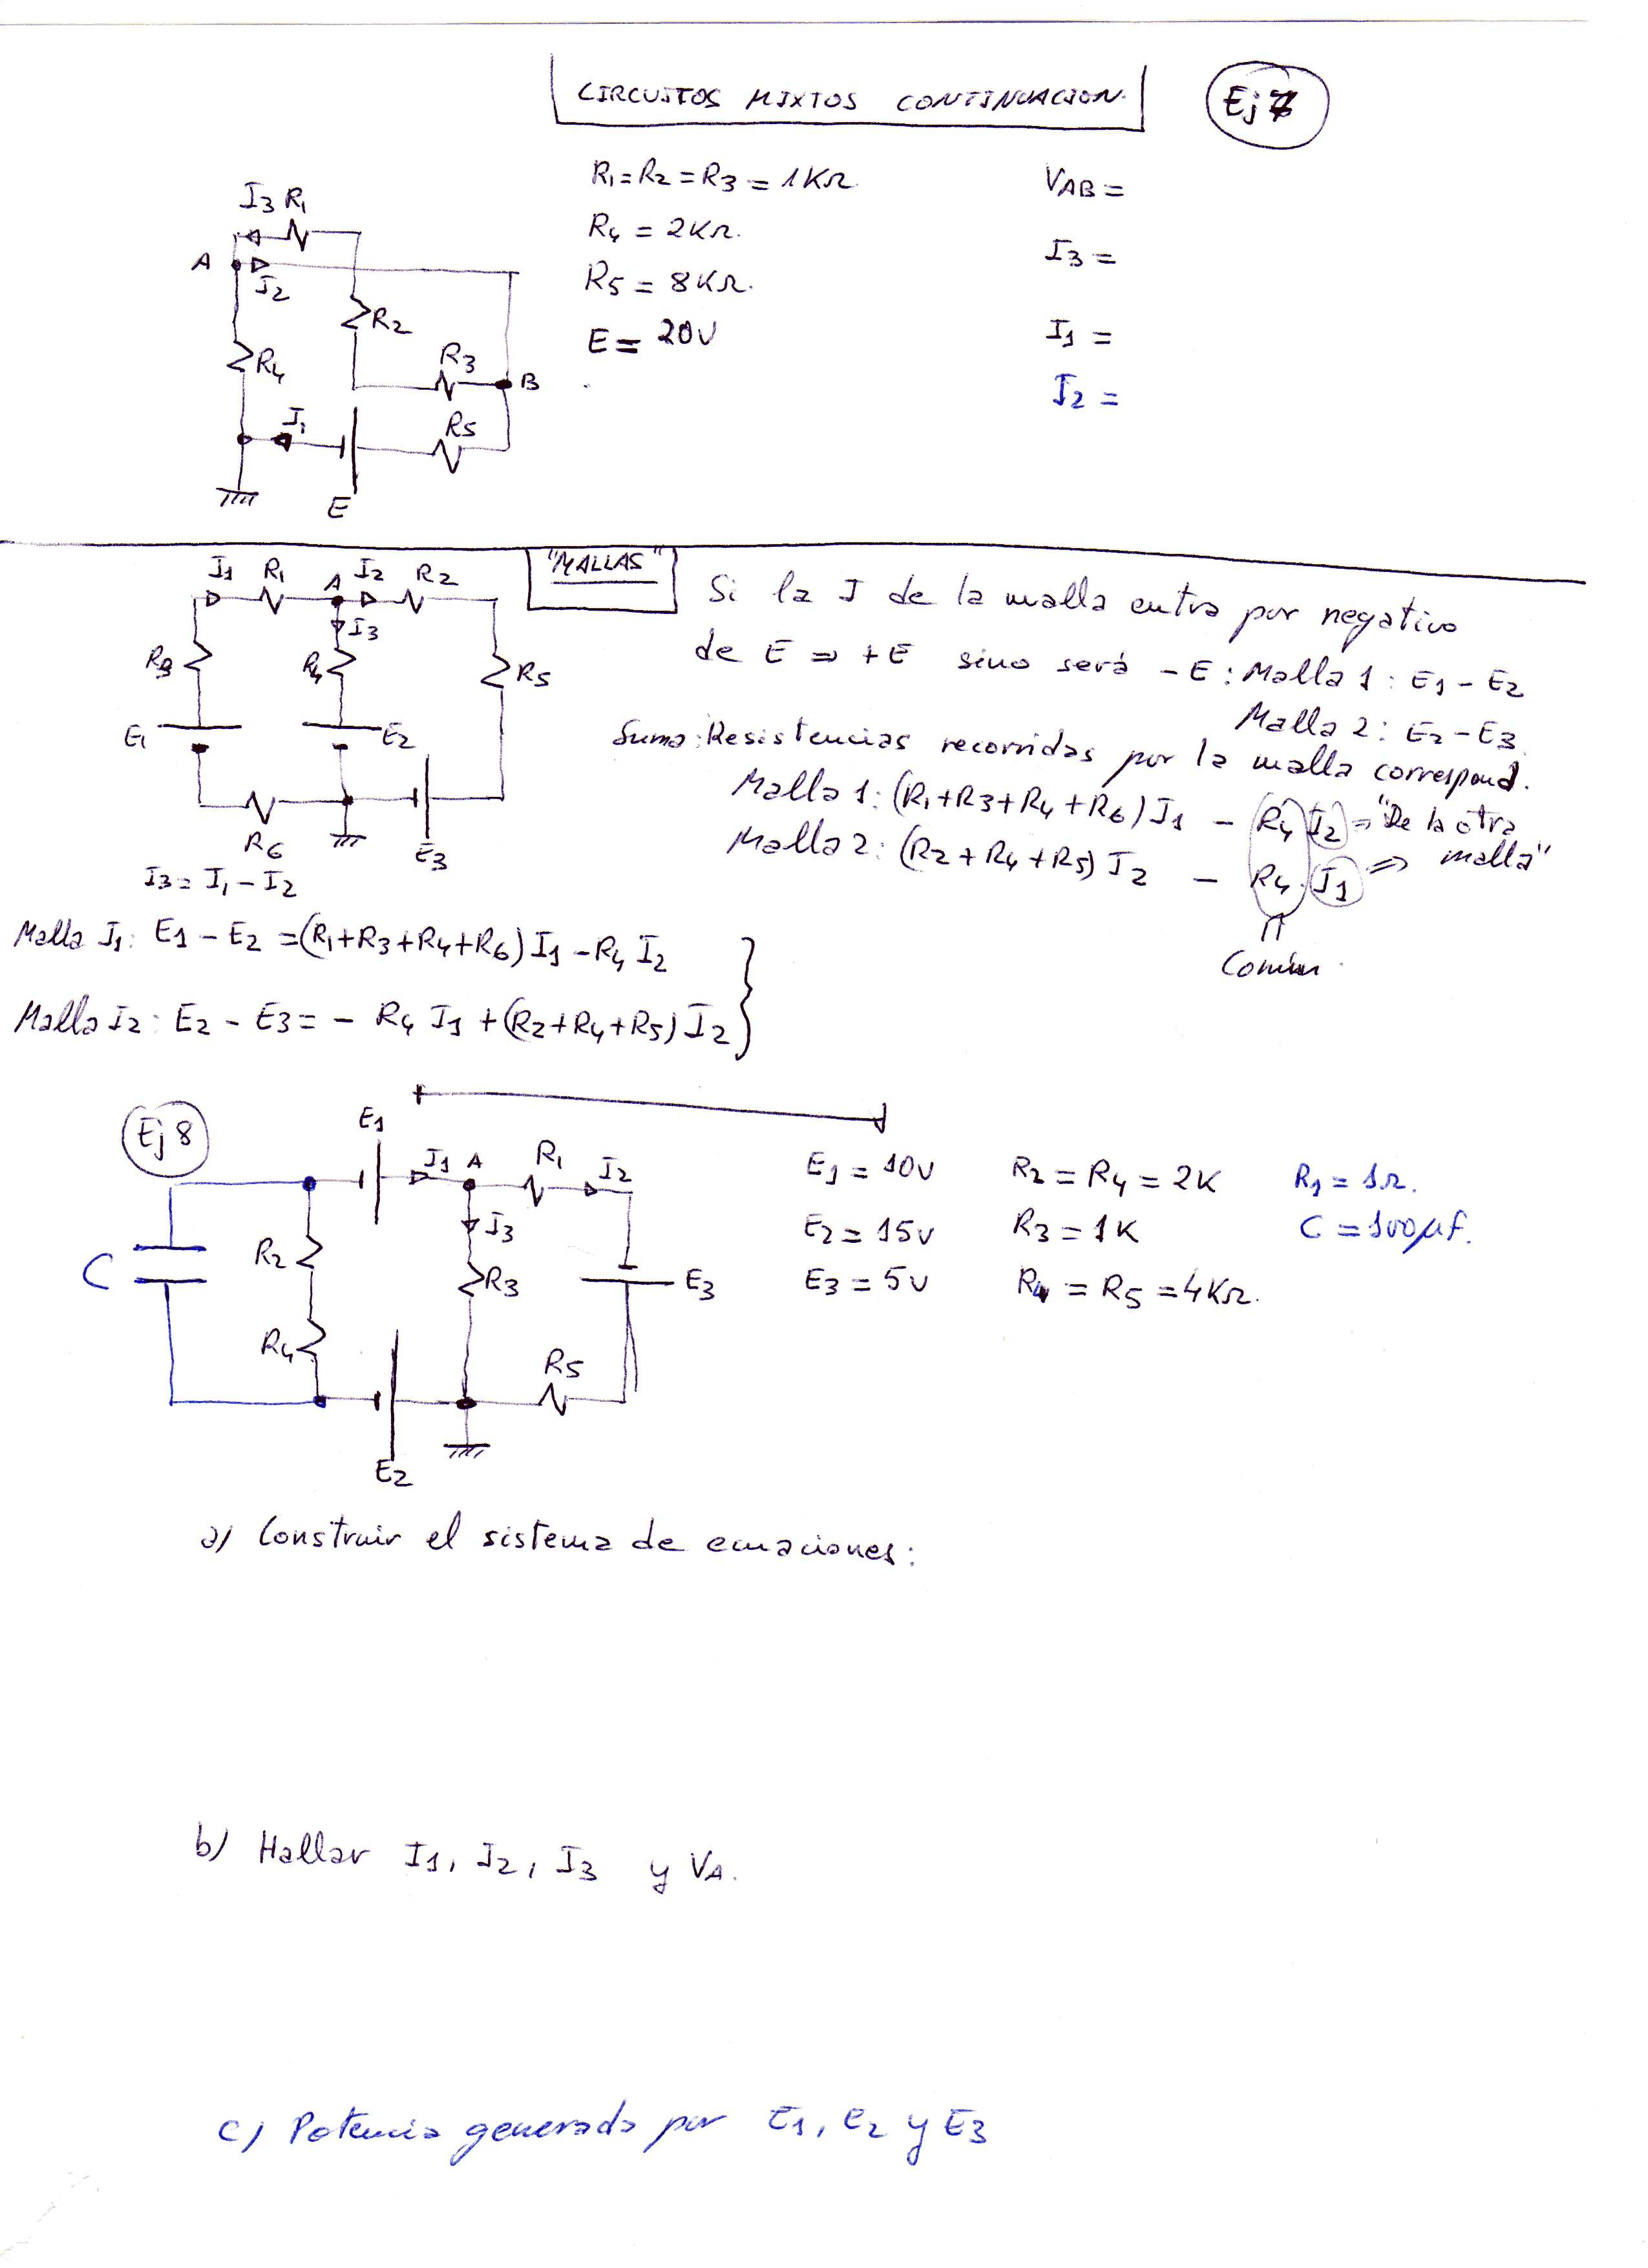 CIRCUITOS MIXTOS CONTINUACION.
Ej 7
I3 R1
A
I2
R2
R4
R3
B
I1
R5
E
R1 = R2 = R3 = 1KΩ
R4 = 2KΩ.
R5 = 8KΩ.
E = 20V
VAB =
I3 =
I1 =
I2 =
"MALLAS"
I1 R1 A I2 R2
I3
R3
R4
R5
E1
E2
R6
E3
I3 = I1 - I2
Si la I de la malla entra por negativo
de E ⇒ +E sino será - E : Malla 1 : E1 - E2
Malla 2 : E2 - E3
Suma: Resistencias recorridas por la malla correspond.
Malla 1 : (R1+R3+R4+R6) I1 - R4 I2 ⇒ "De la otra
Malla 2 : (R2+R4+R5) I2 - R4 . I1 ⇒ malla"
⇑
Común.
Malla I1: E1 - E2 = (R1+R3+R4+R6) I1 - R4 I2
Malla I2 : E2 - E3 = - R4 I1 + (R2+R4+R5) I2
Ej 8
E1
I1 A R1 I2
I3
C
R2
R3
E3
R4
R5
E2
E1 = 10V R2 = R4 = 2K R1 = 1Ω.
E2 = 15V R3 = 1K C = 100μf.
E3 = 5V R4 = R5 = 4KΩ.
a) Construir el sistema de ecuaciones:
b) Hallar I1, I2, I3 y VA.
c) Potencia generada por E1, E2 y E3